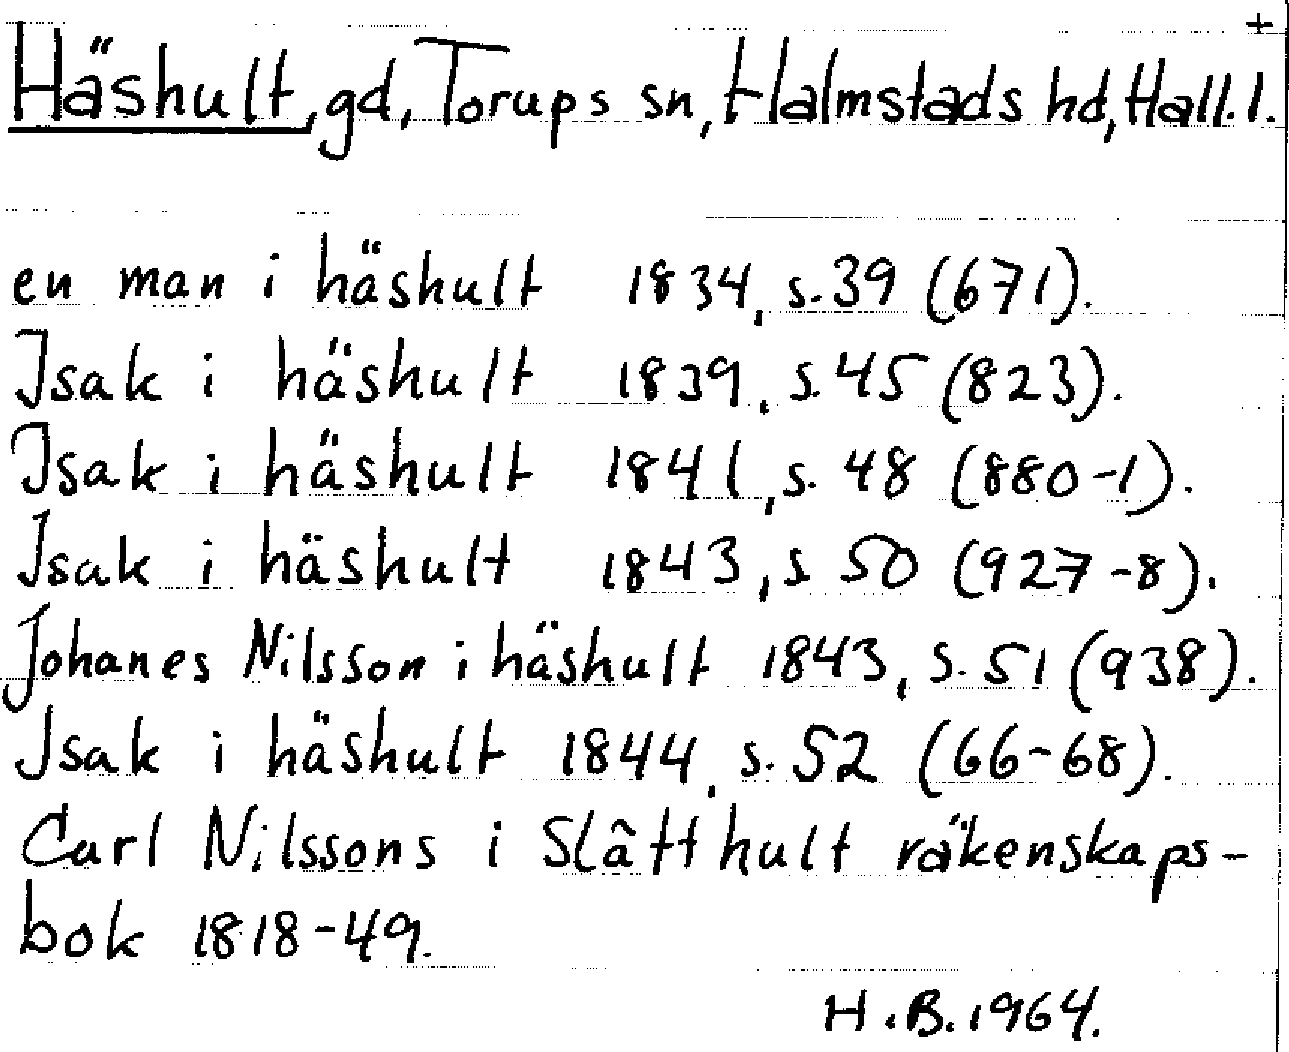 +
Häshult, gd, Torups sn, Halmstads hd, Hall. l.
en man i häshult 1834, s. 39 (671).
Isak i häshult 1839, s. 45 (823).
Isak i häshult 1841, s. 48 (880-1).
Isak i häshult 1843, s 50 (927-8).
Johanes Nilsson i häshult 1843, s. 51 (938).
Isak i häshult 1844, s. 52 (66-68).
Carl Nilssons i Slätthult räkenskaps-
bok 1818-49.
H.B. 1964.